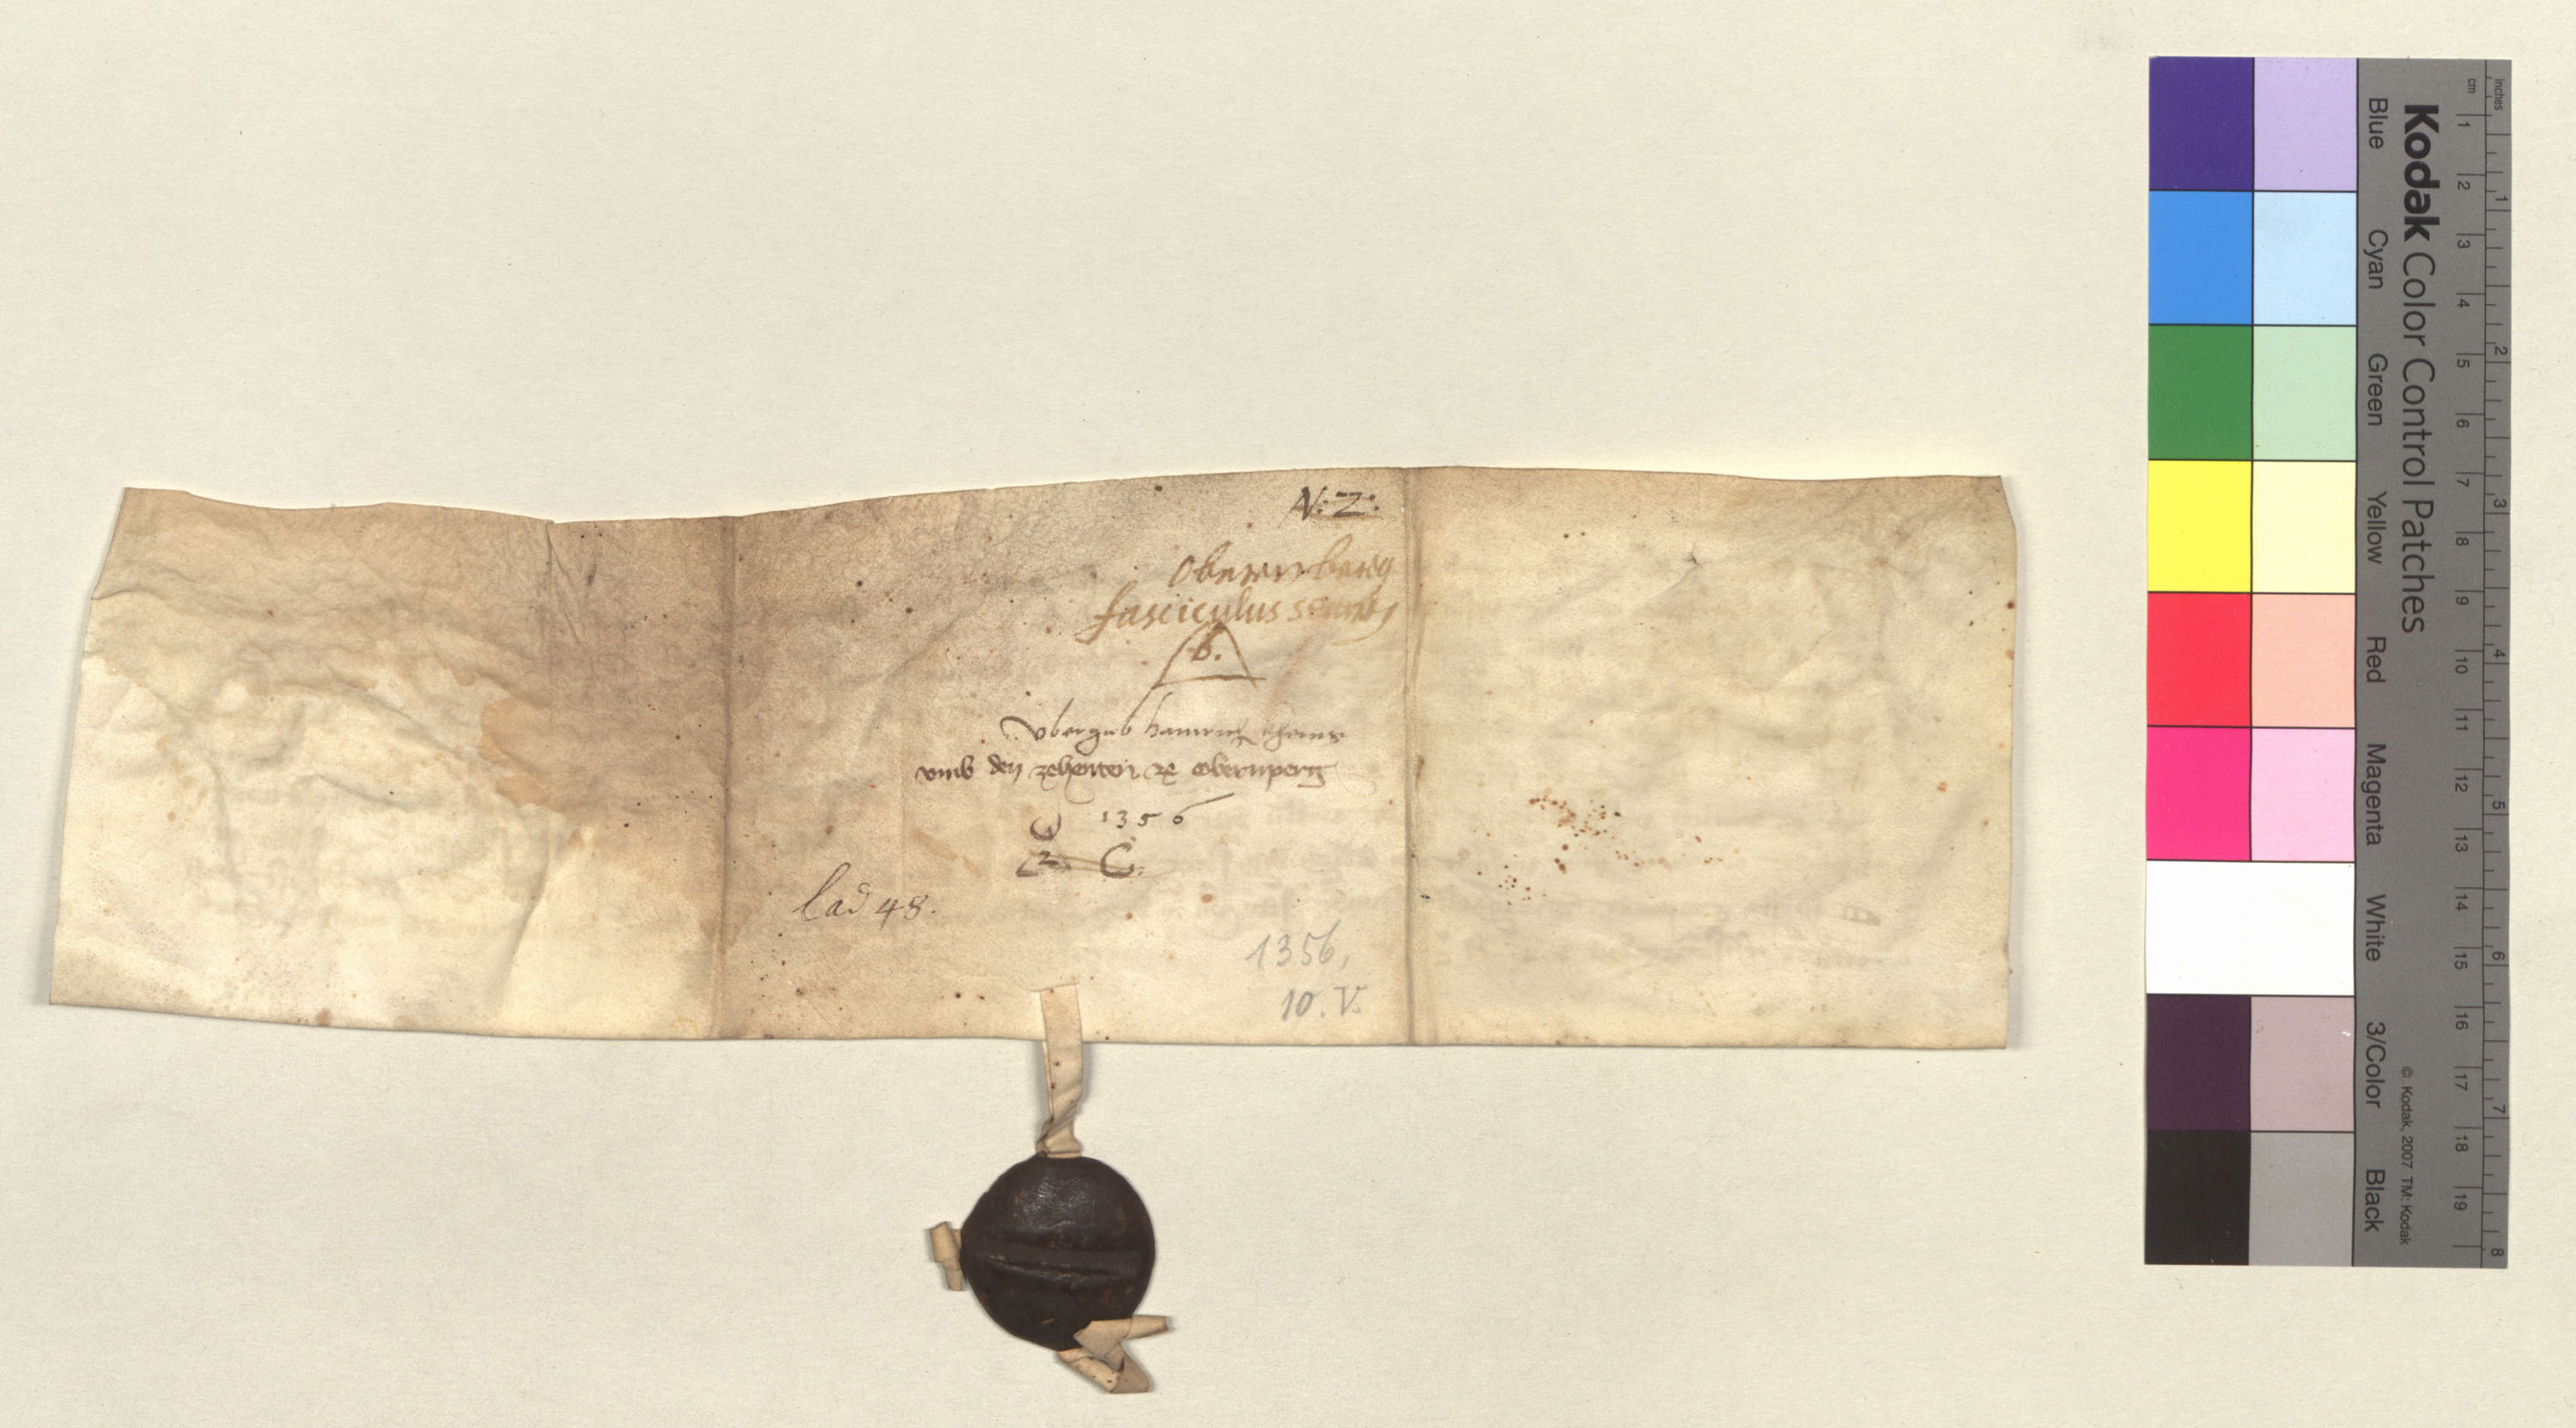 N: 2:
Obernberg
fasciculus
6.
Vbergab hainrich
vmb den zehenten ze obernperg
1356
2. C.
Lad 48.
1356,
10. V.
Kodak Color Control Patches
Blue Cyan Green Yellow Red Magenta White 3/Color Black
© Kodak, 2007 TM: Kodak
cm 1 2 3 4 5 6 7 8 9 10 11 12 13 14 15 16 17 18 19
inches 1 2 3 4 5 6 7 8